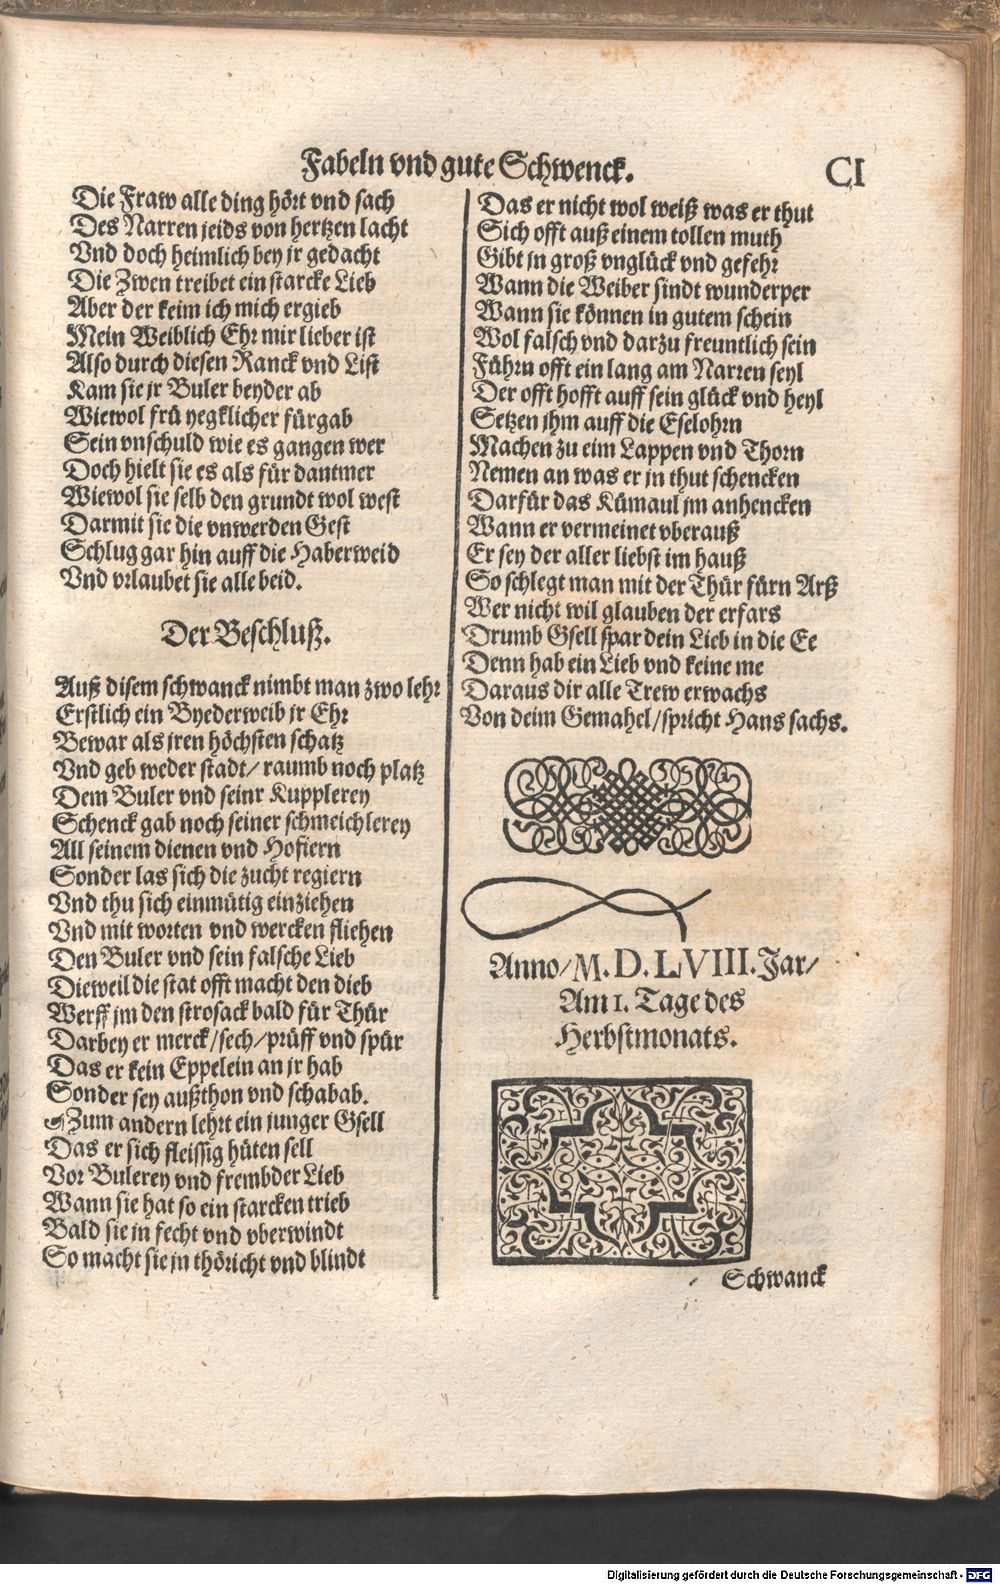 Fabeln vnd gute Schwenck. CI
Die Fraw alle ding hört vnd sach
Des Narren jeids von hertzen lacht
Vnd doch heimlich bey jr gedacht
Die Zwen treibet ein starcke Lieb
Aber der keim ich mich ergieb
Mein Weiblich Ehr mir lieber ist
Also durch diesen Ranck vnd List
Kam sie jr Buler beyder ab
Wiewol frü yegklicher fürgab
Sein vnschuld wie es gangen wer
Doch hielt sie es als für dantmer
Wiewol sie selb den grundt wol west
Darmit sie die vnwerden Gest
Schlug gar hin auff die Haberweid
Vnd vrlaubet sie alle beid.
Der Beschluß.
Auß disem schwanck nimbt man zwo lehr
Erstlich ein Byederweib jr Ehr
Bewar als jren höchsten schatz
Vnd geb weder stadt/ raumb noch platz
Dem Buler vnd seinr Kupplerey
Schenck gab noch seiner schmeichlerey
All seinem dienen vnd Hofiern
Sonder las sich die zucht regiern
Vnd thu sich einmütig einziehen
Vnd mit worten vnd wercken fliehen
Den Buler vnd sein falsche Lieb
Dieweil die stat offt macht den dieb
Werff jm den strosack bald für Thür
Darbey er merck/sech/prüff vnd spür
Das er kein Eppelein an jr hab
Sonder sey außthon vnd schabab.
Zum andern lehrt ein junger Gsell
Das er sich fleissig hüten sell
Vor Bulerey vnd frembder Lieb
Wann sie hat so ein starcken trieb
Bald sie jn fecht vnd vberwindt
So macht sie jn thöricht vnd blindt
Das er nicht wol weiß was er thut
Sich offt auß einem tollen muth
Gibt jn groß vnglück vnd gefehr
Wann die Weiber sindt wunderper
Wann sie können in gutem schein
Wol falsch vnd darzu freuntlich sein
Führn offt ein lang am Narren seyl
Der offt hofft auff sein glück vnd heyl
Setzen jhm auff die Eselohrn
Machen zu eim Lappen vnd Thorn
Nemen an was er jn thut schencken
Darfür das Kümaul jm anhencken
Wann er vermeinet vberauß
Er sey der aller liebst im hauß
So schlegt man mit der Thür fürn Arß
Wer nicht wil glauben der erfars
Drumb Gsell spar dein Lieb in die Ee
Denn hab ein Lieb vnd keine me
Daraus dir alle Trew erwachs
Von deim Gemahel/spricht Hans sachs.
Anno/M.D.LVIII.Jar/
Am 1. Tage des
Herbstmonats.
Schwanck
Digitalisierung gefördert durch die Deutsche Forschungsgemeinschaft - DFG